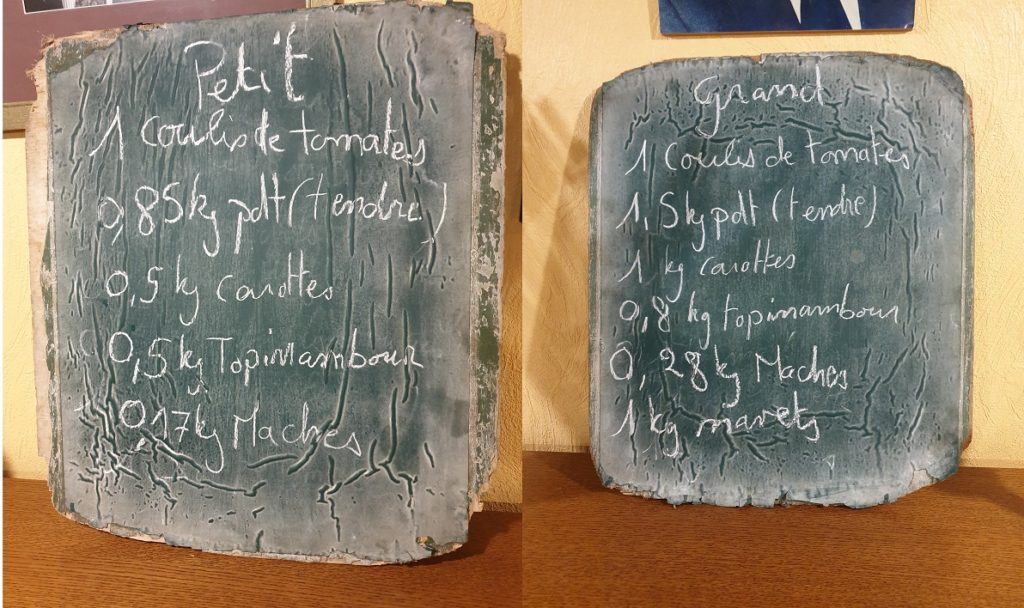 Petit
1 Coulis de tomates
0,85kg pdt (tendre)
0,5 kg carottes
0,5 kg Topinambour
0,17kg Maches
Grand
1 Coulis de tomates
1,5kg pdt (tendre)
1 kg carottes
0,8 kg topinambour
0,28 kg Maches
1 kg navets